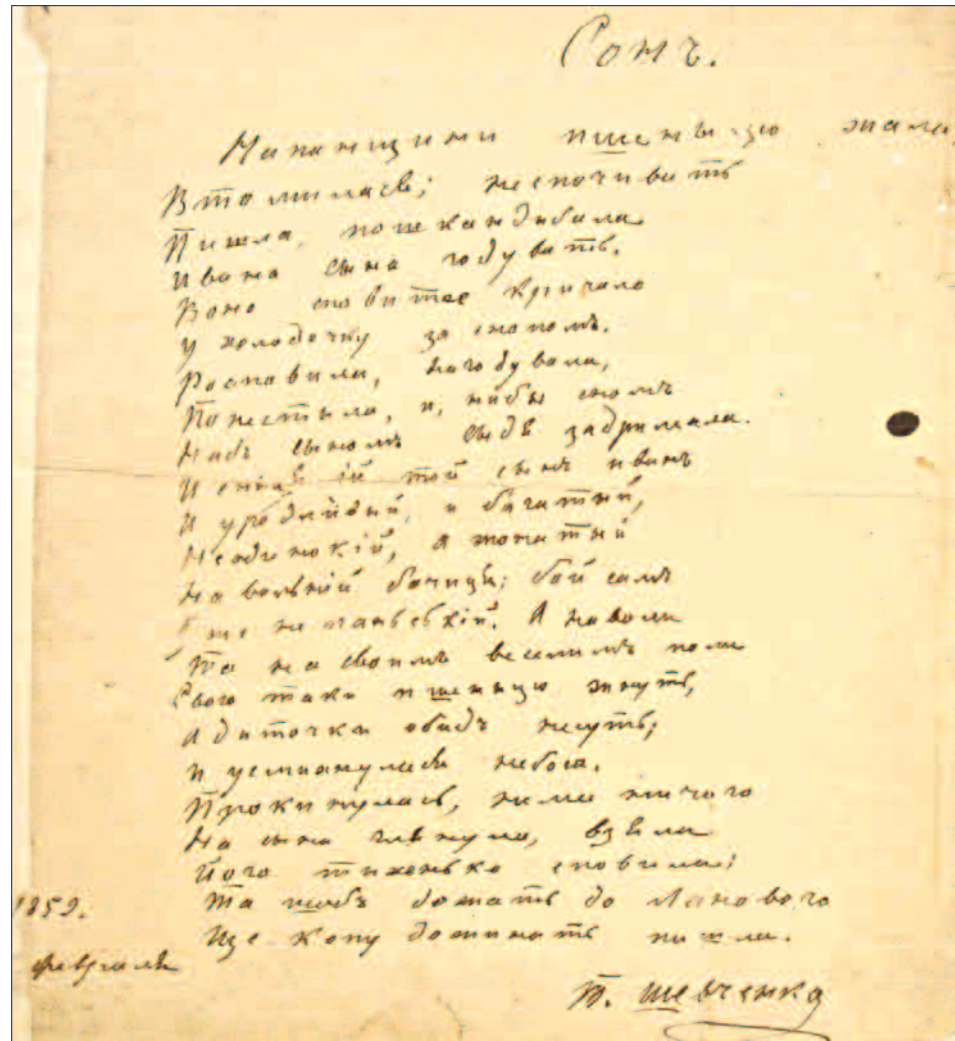 Сонъ.
Напанщини пшеныцю жала,
Втомилась; неспочивать
Пишла, пошкандибала
Ивана сына годувать.
Воно сповитее кричало
У холодочку за снопомъ.
Росповила, нагодувала,
Попестыла, и, нибы сномъ
Надъ сыномъ сыдя задримала.
И сныця ій той сынъ Иванъ
И уродлывый, и багатый,
Неодинокій, а жонатый
На вольній бачиця; бой самъ
Уже не паньскій. А наволи
Та на своимъ веселимъ поли
Свою таки пшеныцю жнуть,
А диточки обидъ несуть;
И усмихнулася небога.
Прокинулась, нема ничого
На сына глянула, взяла
Його тихенько сповила;
Та щобъ дожать до Ланового
Ще копу дожинать пишла.
1859.
февраля
Т. Шевченко